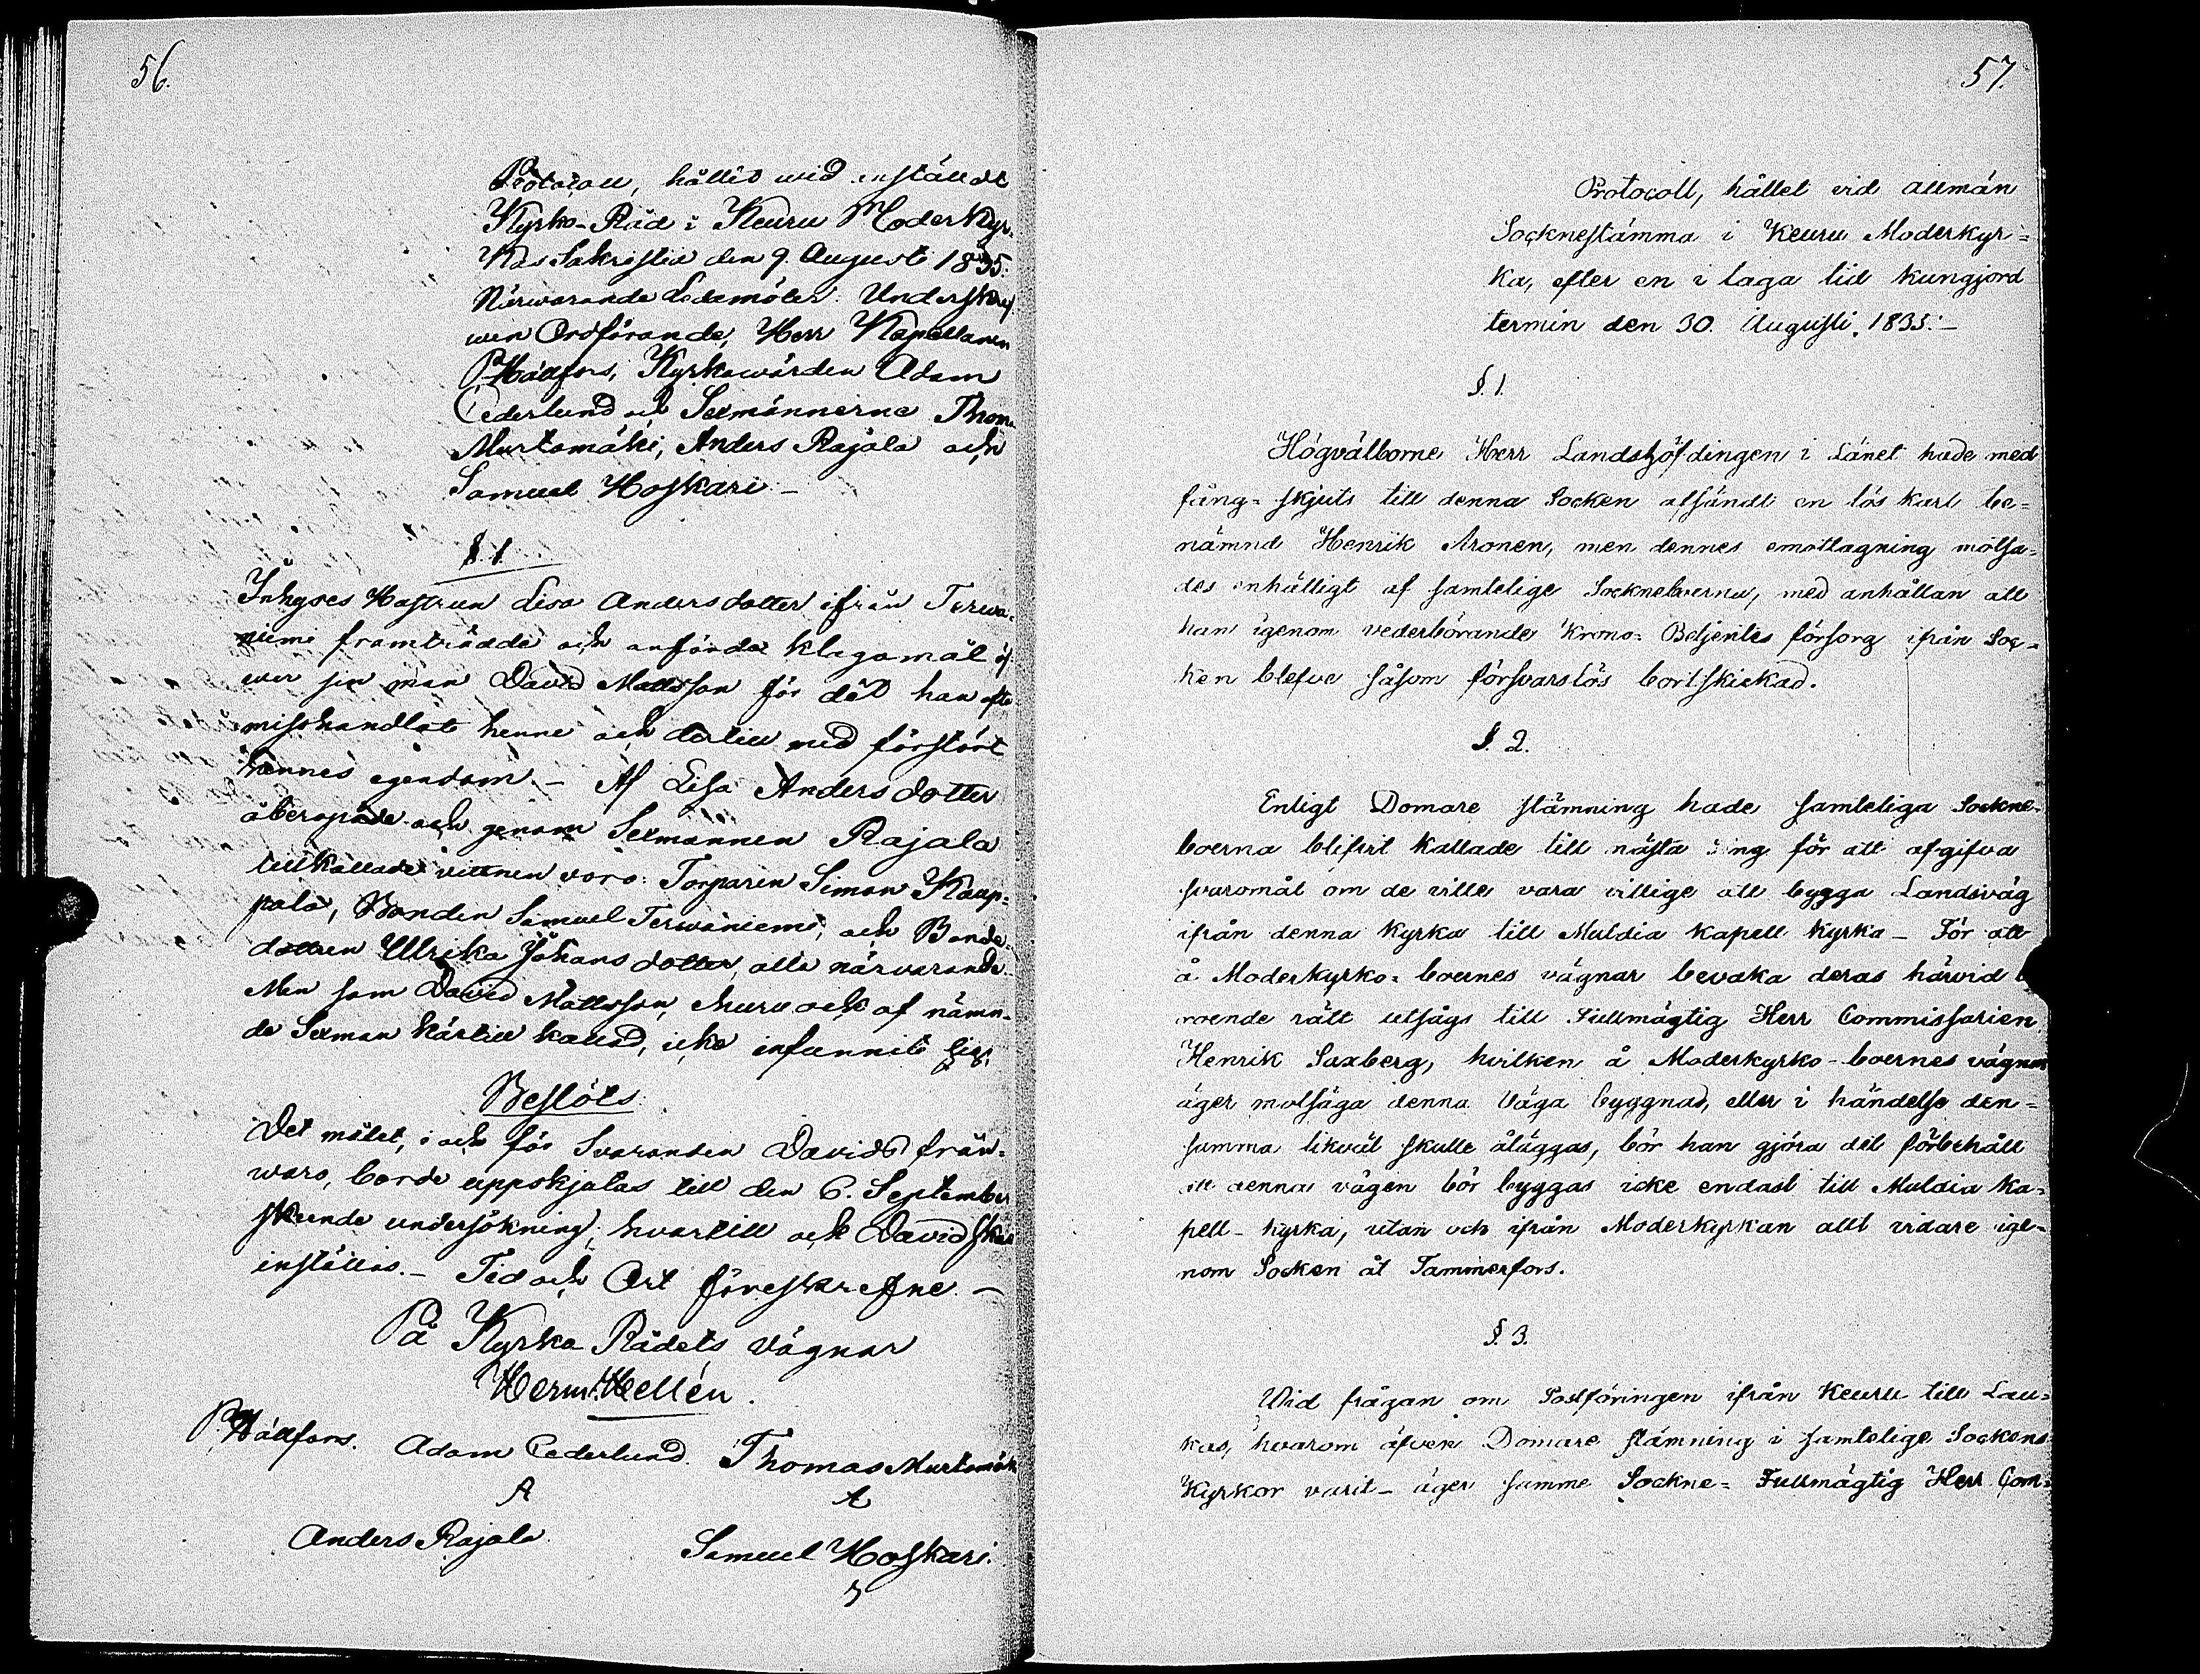 56.
Protocoll, hållit wid anstäldt
Kyrko-Råd i Keuru Moder Kyr-
kas Sakristia den 9. Augusti 1835.
Närwarande Ledamöter: Underskref-
wen Ordförande, Herr Kapellanen
P. Hållfors, Kyrkowärden Adam
Cederlund och Sexmännerne Thom.
Murtomäki, Anders Rajala och
Samuel Hoskari. –
§. 1.
Inhyses Hustrun Lisa Anders dotter ifrån Terwa-
niemi framträdde och anförde klagomål öf-
wer sin man David Mattsson för det han ofta
misshandlat henne och dertill med förstört
hennes egendom. – Af Lisa Anders dotter
åberopade och genom Sexmannen Rajala
tillkallade vittnen voro: Torparen Simon Kaup-
pala, Bonden Samuel Terwaniemi, och Bonde-
dottren Ullrika Johans dotter, alla närvarande.
Men som David Mattsson, churu ock af nämn-
de Sexman härtill kallad, icke infunnit sig;
Beslöts:
Det målet, i och för Svaranden Davids från-
waro, borde uppskjutas till den 6. September
skeende undersökning; hvartill ock David skal
inställas. – Tid och Ort föreskrefne. –
På Kyrko Rådets vägnar
Herm. Hellén.
P. Hållfors. Adam Cederlund. Thomas Murtomäki
A A
Anders Rajala Samuel Hoskari.
57.
Protocoll, hållet vid allmän
Socknestämma i Keuru Moderkyr=
ka, efter en i laga tid kungjord
termin den 30. Augusti. 1835. –
§. 1.
Högvälborne Herr Landshöfdingen i Länet hade med
fång= skjuts till denna Socken afsändt en lös karl be=
nämnd Henrik Aronen, men dennes emottagning motsa=
des enhälligt af samtelige Sockneboerna, med anhållan att
han igenom vederbörande Krono= Betjentes försorg ifrån Soc=
ken blefve såsom försvarslös bortskickad.
§. 2.
Enligt Domare stämning hade samteliga Sockne-
boerna blifvit kallade till nästa ting för att afgifva
svaromål om de ville vara villige att bygga Landsväg
ifrån denna Kyrka till Multia Kapell Kyrka – För att
å Moderkyrko= boernes vägnar bevaka deras härvid be
roende rätt utsågs till Fullmägtig Herr Commissarien
Henrik Saxberg, hvilken å Moderkyrko-boernes vägnar
äger motsäga denna Väga byggnad, eller i händelse den=
samma likväl skulle åläggas, bör han gjöra det förbehåll
att denna vägen bör byggas icke endast till Muldia Ka=
pell- kyrka, utan och ifrån Moderkyrkan allt vidare ige=
nom Socken åt Tammerfors.
§. 3.
Wid frågan om Postföringen ifrån Keuru till Lau=
kas, hvarom äfven Domare stämning i samtelige Sockens
Kyrkor varit – äger samme Sockne= Fullmägtig Herr Com=